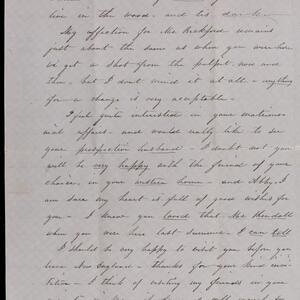 live in the wood, and his
My affection for Mr Bickford remains
just about the same as when you were here
we get a shot from the pulpit now and
then, but I don't mind it at all - anything
for a change is very acceptable -
I feel quite interested in your matrimo-
nial affairs - and would really like to see
your prospective husband - I doubt not you
will be very happy with the friend of your
choice, in your western home - and Abby, I
am sure my heart is full of good wishes for
you - I knew you loved that Mr Kendall
when you were here last summer - I can tell
I should be very happy to visit you before you
leave New England - thanks for your kind invi-
tation - I think of visiting my friends in your